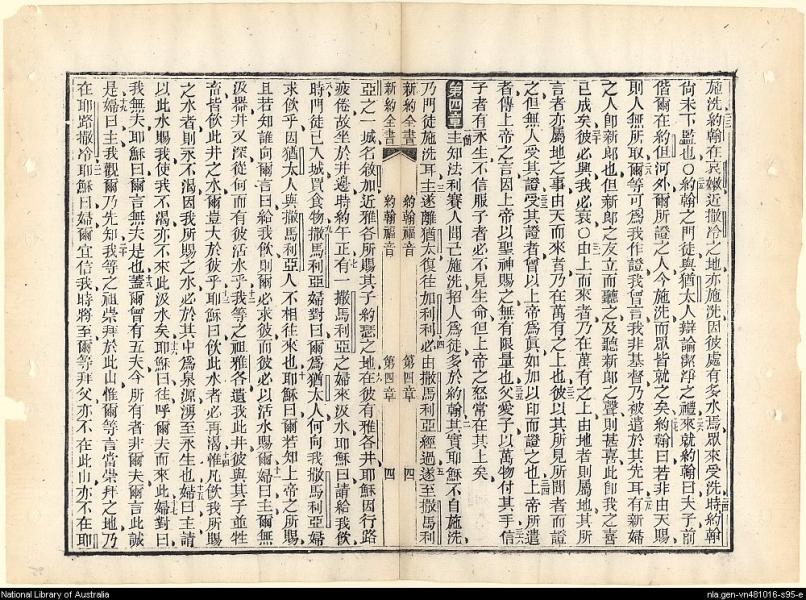 施洗約翰在哀嫩近撒冷之地亦施洗因彼處有多水焉眾來受洗時約翰
尚未下監也○約翰之門徒與猶太人辯論潔淨之禮來就約翰曰夫子前
偕爾在約但河外爾所證之人今施洗而眾皆就之矣約翰曰若非由天賜
則人無所取爾等可為我作證我曾言我非基督乃被遣於其先耳有新婦
之人即新郎也但新郎之友立而聽之及聽新郎之聲則甚喜此即我之喜
已成矣彼必興我必衰○由上而來者乃在萬有之上由地者則屬地其所
言者亦屬地之事由天而來者乃在萬有之上也彼以其所見所聞者而證
之但無人受其證受其證者曾以上帝為真如加以印而證之也上帝所遣
者傳上帝之言因上帝以聖神賜之無有限量也父愛子以萬物付其手信
子者有永生不信服子者必不見生命但上帝之怒常在其上矣
第四章主知法利賽人聞己施洗招人為徒多於約翰其實耶穌不自施洗
乃門徒施洗耳主遂離猶太復往加利利必由撒馬利亞經過遂至撒馬利
新約全書 約翰福音 第四章 四
新約全書 約翰福音 第四章 四
亞之一城名敘加近雅各所賜其子約瑟之地在彼有雅各井耶穌因行路
疲倦故坐於井邊時約午正有一撒馬利亞之婦來汲水耶穌曰請給我飲
時門徒已入城買食物撒馬利亞婦對曰爾為猶太人何向我撒馬利亞婦
求飲乎因猶太人與撒馬利亞人不相往來也耶穌曰爾若知上帝之所賜
且若知誰向爾言曰給我飲則爾必求彼而彼必以活水賜爾婦曰主爾無
汲器井又深從何而有彼活水乎我等之祖雅各遺我此井彼與其子並牲
畜皆飲此井之水爾豈大於彼乎耶穌曰飲此水者必再渴惟凡飲我所賜
之水者則永不渴因我所賜之水必於其中為泉源湧至永生也婦曰主請
以此水賜我使我不渴亦不來此汲水矣耶穌曰往呼爾夫而來此婦對曰
我無夫耶穌曰爾言無夫是也蓋爾曾有五夫今所有者非爾夫爾言此誠
是婦曰主我觀爾乃先知我等之祖崇拜於此山惟爾等言當崇拜之地乃
在耶路撒冷耶穌曰婦爾宜信我時將至爾等拜父亦不在此山亦不在耶
National Library of Australia
nla.gen-vn481016-s95-e